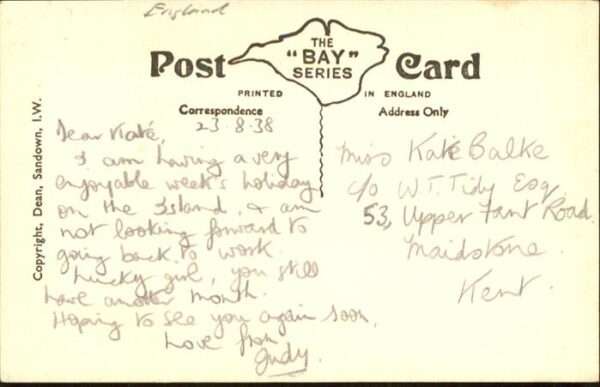 England
Post Card
THE
"BAY"
SERIES
PRINTED IN ENGLAND
Correspondence
Address Only
23-8-38
Dear Kate,
I am having a very
enjoyable week's holiday
on the Island, & am
not looking forward to
going back to work.
Lucky girl, you still
have another month.
Hoping to see you again soon,
Love from
Judy.
Miss Kate Balke
c/o W.T. Tidy Esq
53, Upper Fant Road.
Maidstone.
Kent.
Copyright, Dean, Sandown, I.W.